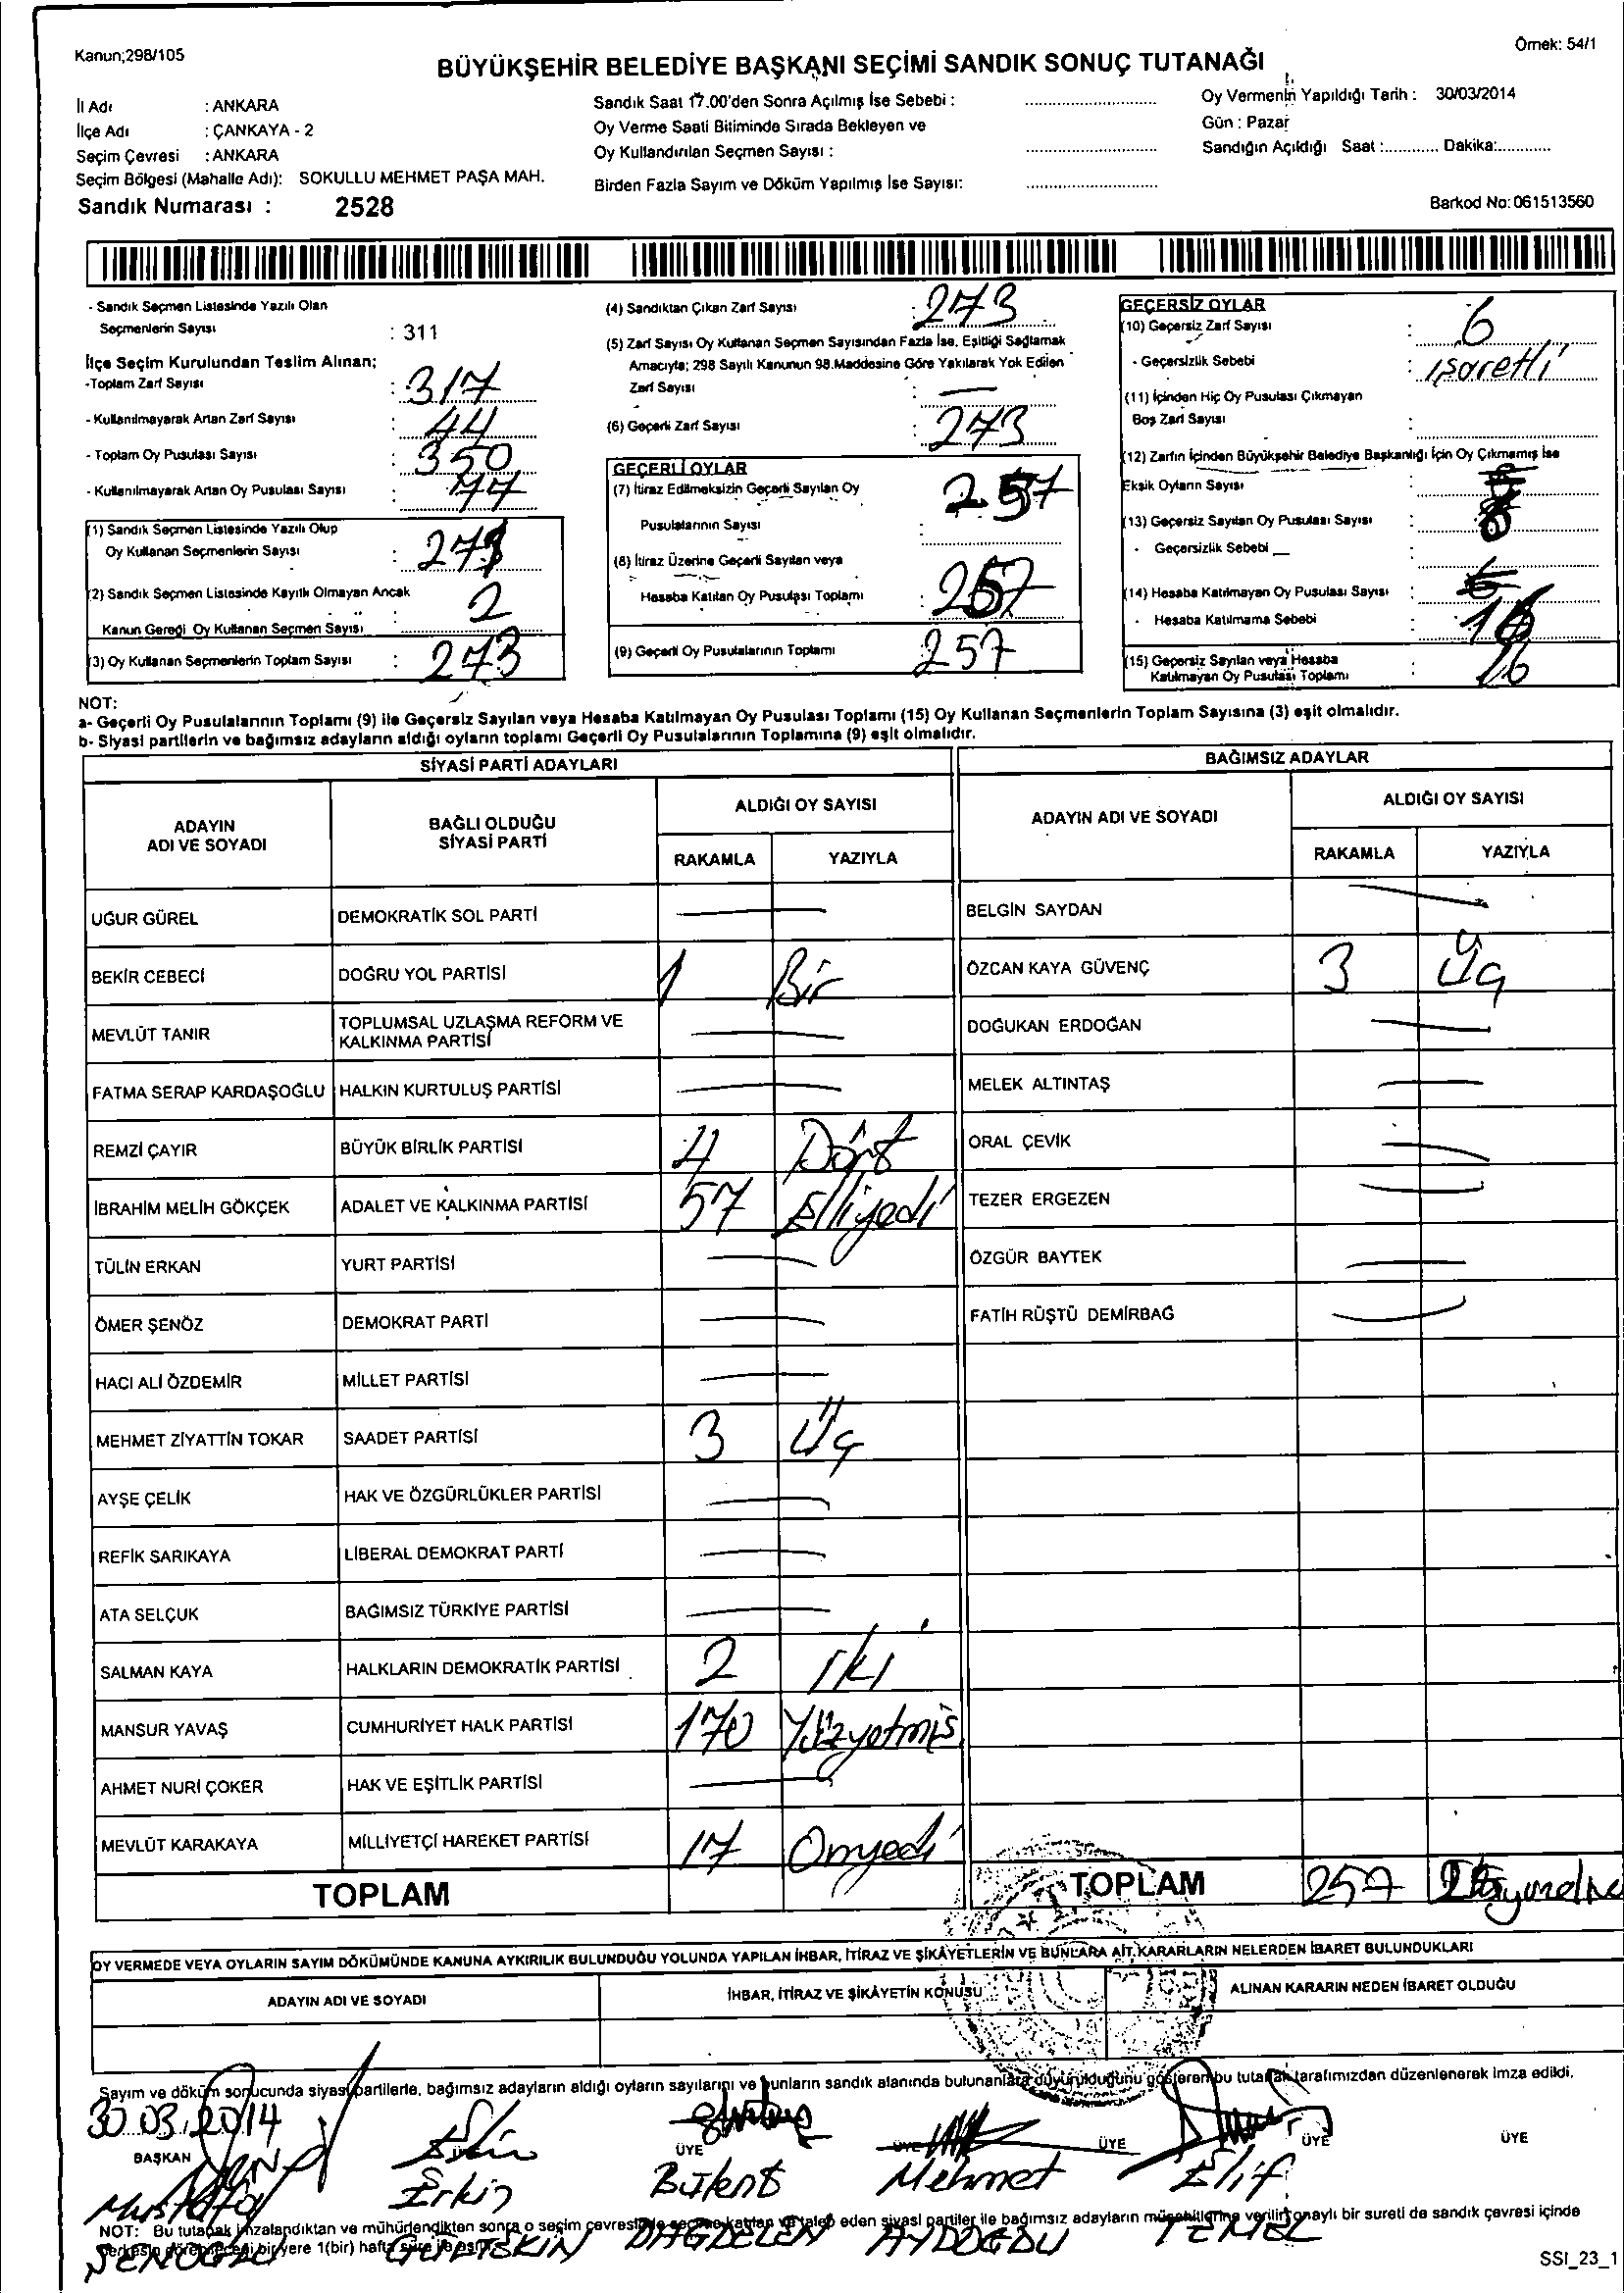 Kanun;298/105
Örnek: 54/1
BÜYÜKŞEHİR BELEDİYE BAŞKANI SEÇİMİ SANDIK SONUÇ TUTANAĞI
İl Adı : ANKARA
İlçe Adı : ÇANKAYA - 2
Seçim Çevresi : ANKARA
Seçim Bölgesi (Mahalle Adı): SOKULLU MEHMET PAŞA MAH.
Sandık Numarası : 2528
Sandık Saat 17.00'den Sonra Açılmış İse Sebebi :
Oy Verme Saati Bitiminde Sırada Bekleyen ve
Oy Kullandırılan Seçmen Sayısı :
Birden Fazla Sayım ve Döküm Yapılmış İse Sayısı:
Oy Vermenin Yapıldığı Tarih : 30/03/2014
Gün : Pazar
Sandığın Açıldığı Saat :............ Dakika:............
Barkod No: 061513560
- Sandık Seçmen Listesinde Yazılı Olan
Seçmenlerin Sayısı : 311
İlçe Seçim Kurulundan Teslim Alınan;
-Toplam Zarf Sayısı : 317
- Kullanılmayarak Artan Zarf Sayısı : 44
- Toplam Oy Pusulası Sayısı : 350
- Kullanılmayarak Artan Oy Pusulası Sayısı : 77
(1) Sandık Seçmen Listesinde Yazılı Olup
Oy Kullanan Seçmenlerin Sayısı : 271
(2) Sandık Seçmen Listesinde Kayıtlı Olmayan Ancak
Kanun Gereği Oy Kullanan Seçmen Sayısı 2
(3) Oy Kullanan Seçmenlerin Toplam Sayısı : 273
(4) Sandıktan Çıkan Zarf Sayısı : 273
(5) Zarf Sayısı Oy Kullanan Seçmen Sayısından Fazla İse, Eşitliği Sağlamak
Amacıyla; 298 Sayılı Kanunun 98.Maddesine Göre Yakılarak Yok Edilen
Zarf Sayısı : —
(6) Geçerli Zarf Sayısı : 273
GEÇERLİ OYLAR
(7) İtiraz Edilmeksizin Geçerli Sayılan Oy
Pusulalarının Sayısı : 257
(8) İtiraz Üzerine Geçerli Sayılan veya
Hesaba Katılan Oy Pusulası Toplamı : 257
(9) Geçerli Oy Pusulalarının Toplamı : 257
GEÇERSİZ OYLAR
(10) Geçersiz Zarf Sayısı : 6
- Geçersizlik Sebebi : işaretli
(11) İçinden Hiç Oy Pusulası Çıkmayan
Boş Zarf Sayısı :
(12) Zarfın İçinden Büyükşehir Belediye Başkanlığı İçin Oy Çıkmamış İse
Eksik Oyların Sayısı :
(13) Geçersiz Sayılan Oy Pusulası Sayısı :
- Geçersizlik Sebebi :
(14) Hesaba Katılmayan Oy Pusulası Sayısı :
- Hesaba Katılmama Sebebi : 16
(15) Geçersiz Sayılan veya Hesaba
Katılmayan Oy Pusulası Toplamı : 16
NOT:
a- Geçerli Oy Pusulalarının Toplamı (9) ile Geçersiz Sayılan veya Hesaba Katılmayan Oy Pusulası Toplamı (15) Oy Kullanan Seçmenlerin Toplam Sayısına (3) eşit olmalıdır.
b- Siyasi partilerin ve bağımsız adayların aldığı oyların toplamı Geçerli Oy Pusulalarının Toplamına (9) eşit olmalıdır.
SİYASİ PARTİ ADAYLARI
ADAYIN ADI VE SOYADI
BAĞLI OLDUĞU SİYASİ PARTİ
ALDIĞI OY SAYISI
RAKAMLA YAZIYLA
UĞUR GÜREL DEMOKRATİK SOL PARTİ —
BEKİR CEBECİ DOĞRU YOL PARTİSİ 1 Bir
MEVLÜT TANIR TOPLUMSAL UZLAŞMA REFORM VE KALKINMA PARTİSİ —
FATMA SERAP KARDAŞOĞLU HALKIN KURTULUŞ PARTİSİ —
REMZİ ÇAYIR BÜYÜK BİRLİK PARTİSİ 4 Dört
İBRAHİM MELİH GÖKÇEK ADALET VE KALKINMA PARTİSİ 57 Elliyedi
TÜLİN ERKAN YURT PARTİSİ —
ÖMER ŞENÖZ DEMOKRAT PARTİ —
HACI ALİ ÖZDEMİR MİLLET PARTİSİ —
MEHMET ZİYATTİN TOKAR SAADET PARTİSİ 3 Üç
AYŞE ÇELİK HAK VE ÖZGÜRLÜKLER PARTİSİ —
REFİK SARIKAYA LİBERAL DEMOKRAT PARTİ —
ATA SELÇUK BAĞIMSIZ TÜRKİYE PARTİSİ —
SALMAN KAYA HALKLARIN DEMOKRATİK PARTİSİ 2 İki
MANSUR YAVAŞ CUMHURİYET HALK PARTİSİ 170 Yüzyetmiş
AHMET NURİ ÇOKER HAK VE EŞİTLİK PARTİSİ —
MEVLÜT KARAKAYA MİLLİYETÇİ HAREKET PARTİSİ 17 Onyedi
TOPLAM
BAĞIMSIZ ADAYLAR
ADAYIN ADI VE SOYADI
ALDIĞI OY SAYISI
RAKAMLA YAZIYLA
BELGİN SAYDAN —
ÖZCAN KAYA GÜVENÇ 3 Üç
DOĞUKAN ERDOĞAN —
MELEK ALTINTAŞ —
ORAL ÇEVİK —
TEZER ERGEZEN —
ÖZGÜR BAYTEK —
FATİH RÜŞTÜ DEMİRBAĞ —
TOPLAM 257
OY VERMEDE VEYA OYLARIN SAYIM DÖKÜMÜNDE KANUNA AYKIRILIK BULUNDUĞU YOLUNDA YAPILAN İHBAR, İTİRAZ VE ŞİKÂYETLERİN VE BUNLARA AİT KARARLARIN NELERDEN İBARET BULUNDUKLARI
ADAYIN ADI VE SOYADI
İHBAR, İTİRAZ VE ŞİKÂYETİN KONUSU
ALINAN KARARIN NEDEN İBARET OLDUĞU
Sayım ve döküm sonucunda siyasi partilerle, bağımsız adayların aldığı oyların sayılarını ve bunların sandık alanında bulunanlara duyurulduğunu gösteren bu tutanak tarafımızdan düzenlenerek imza edildi.
30.03.2014
BAŞKAN ÜYE ÜYE ÜYE ÜYE ÜYE ÜYE
Mustafa Erkin Bülent Mehmet Elif
NOT: Bu tutanak imzalandıktan ve mühürlendikten sonra o seçim çevresinde seçime katılan ve talep eden siyasi partiler ile bağımsız adayların müşahitlerine verilir. Onaylı bir sureti de sandık çevresi içinde
herkesin görebileceği bir yere 1(bir) hafta süre ile asılır.
ŞENOĞLU GÜLTEKİN DAĞDELEN AYDOĞDU TEMEL
SSI_23_1